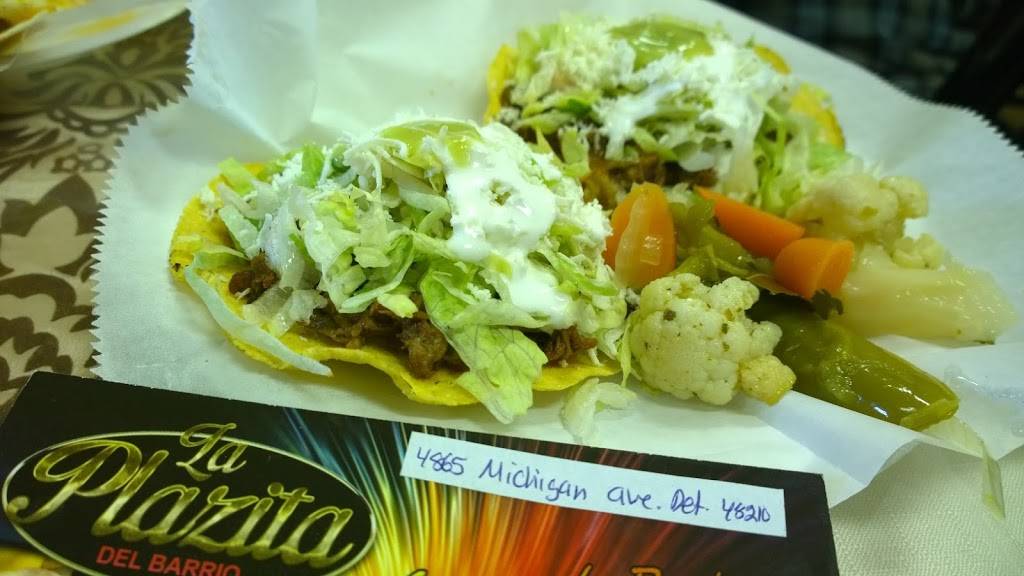 La
Plazita
DEL BARRIO
4865 Michigan ave. Det. 48210